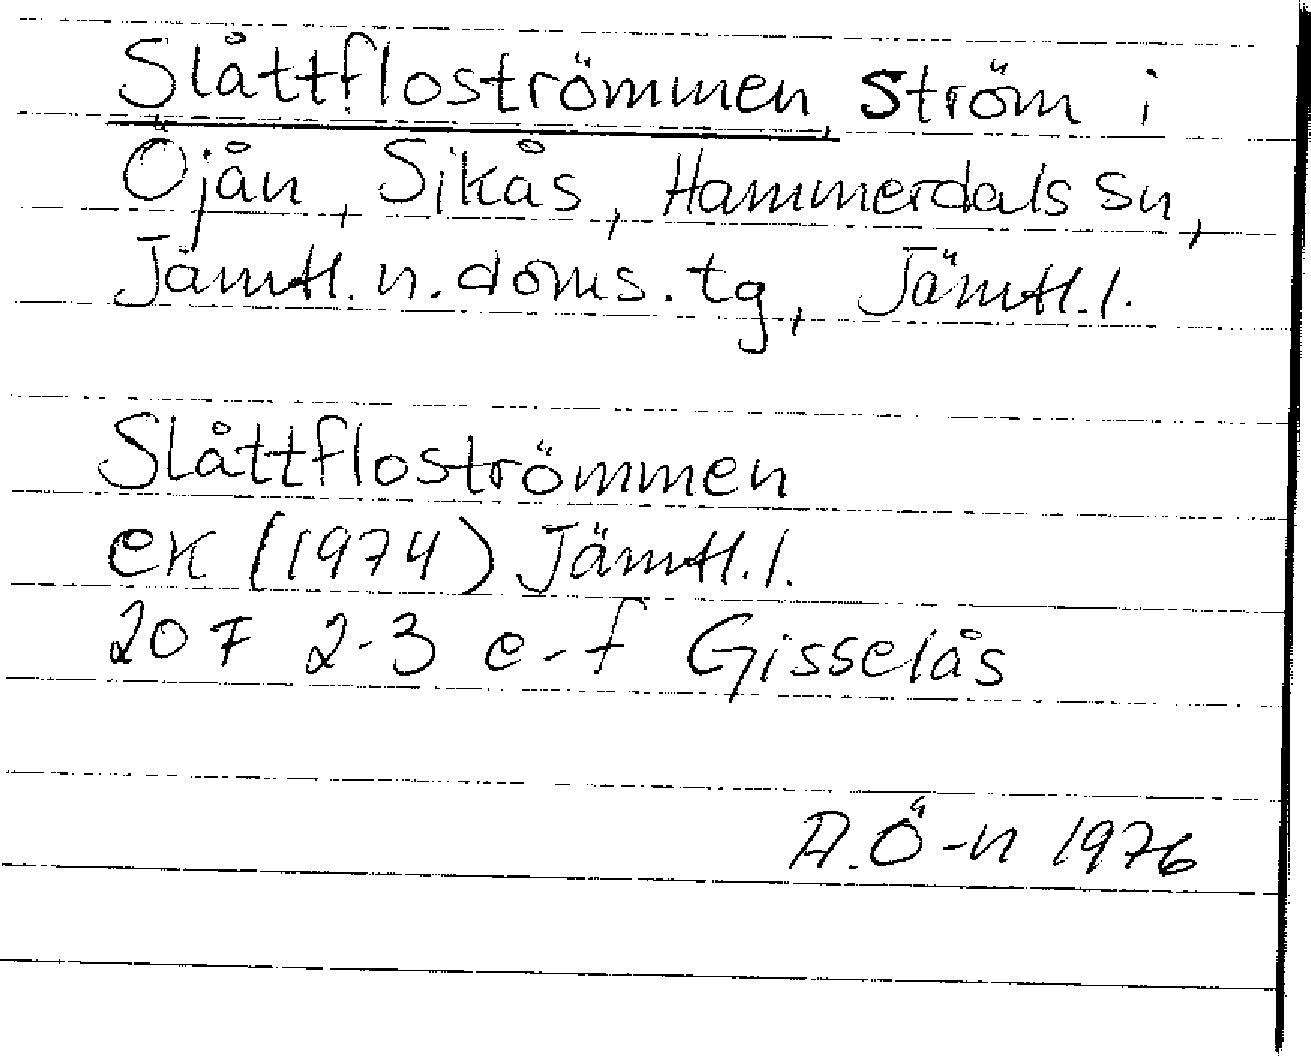 Slåttfloströmmen, Ström i
Öjån, Sikås, Hammerdals sn,
Jämtl. n. doms. tg, Jämtl. l.
Slåttfloströmmen
ek (1974) Jämtl. l.
20 F 2-3 e-f Gisselås
A. Ö-n 1976